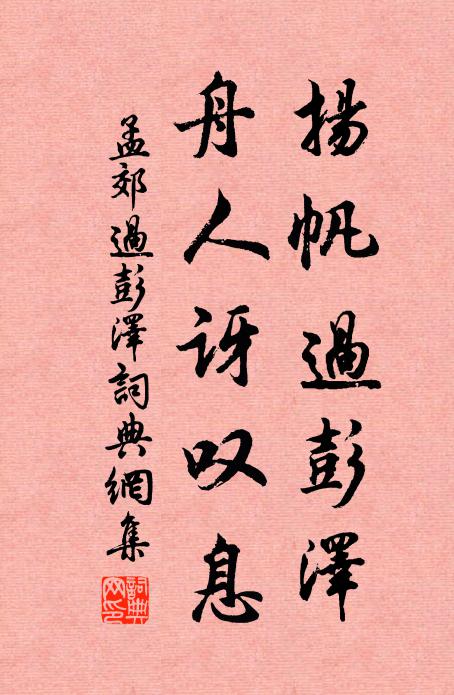 揚帆過彭澤
舟人訝叹息
孟郊過彭澤詞典網集
詞典网印